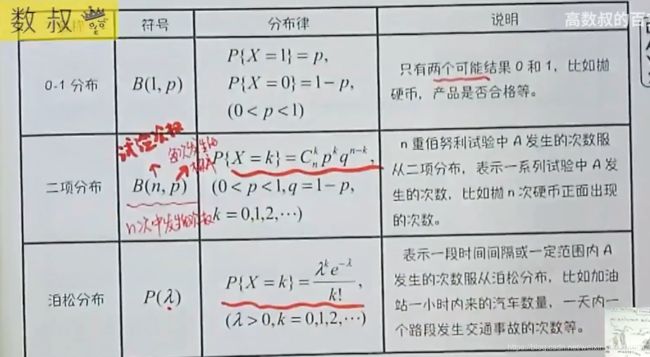 数叔
高数叔的百
符号
分布律
说明
0-1 分布
B(1, p)
P{X = 1} = p,
P{X = 0} = 1 − p,
(0 < p < 1)
只有两个可能结果 0 和 1，比如抛
硬币，产品是否合格等。
试验次数
每次发生的
二项分布
B(n, p)
n次中发生的次数
P{X = k} = Cₙᵏ pᵏ qⁿ⁻ᵏ,
(0 < p < 1, q = 1 − p,
k = 0,1,2,⋯)
n 重伯努利试验中 A 发生的次数服
从二项分布，表示一系列试验中 A 发
生的次数，比如抛 n 次硬币正面出现
的次数。
泊松分布
P(λ)
P{X = k} = λᵏe⁻λ / k!,
(λ > 0, k = 0,1,2,⋯)
表示一段时间间隔或一定范围内 A
发生的次数服从泊松分布，比如加油
站一小时内来的汽车数量，一天内一
个路段发生交通事故的次数等。